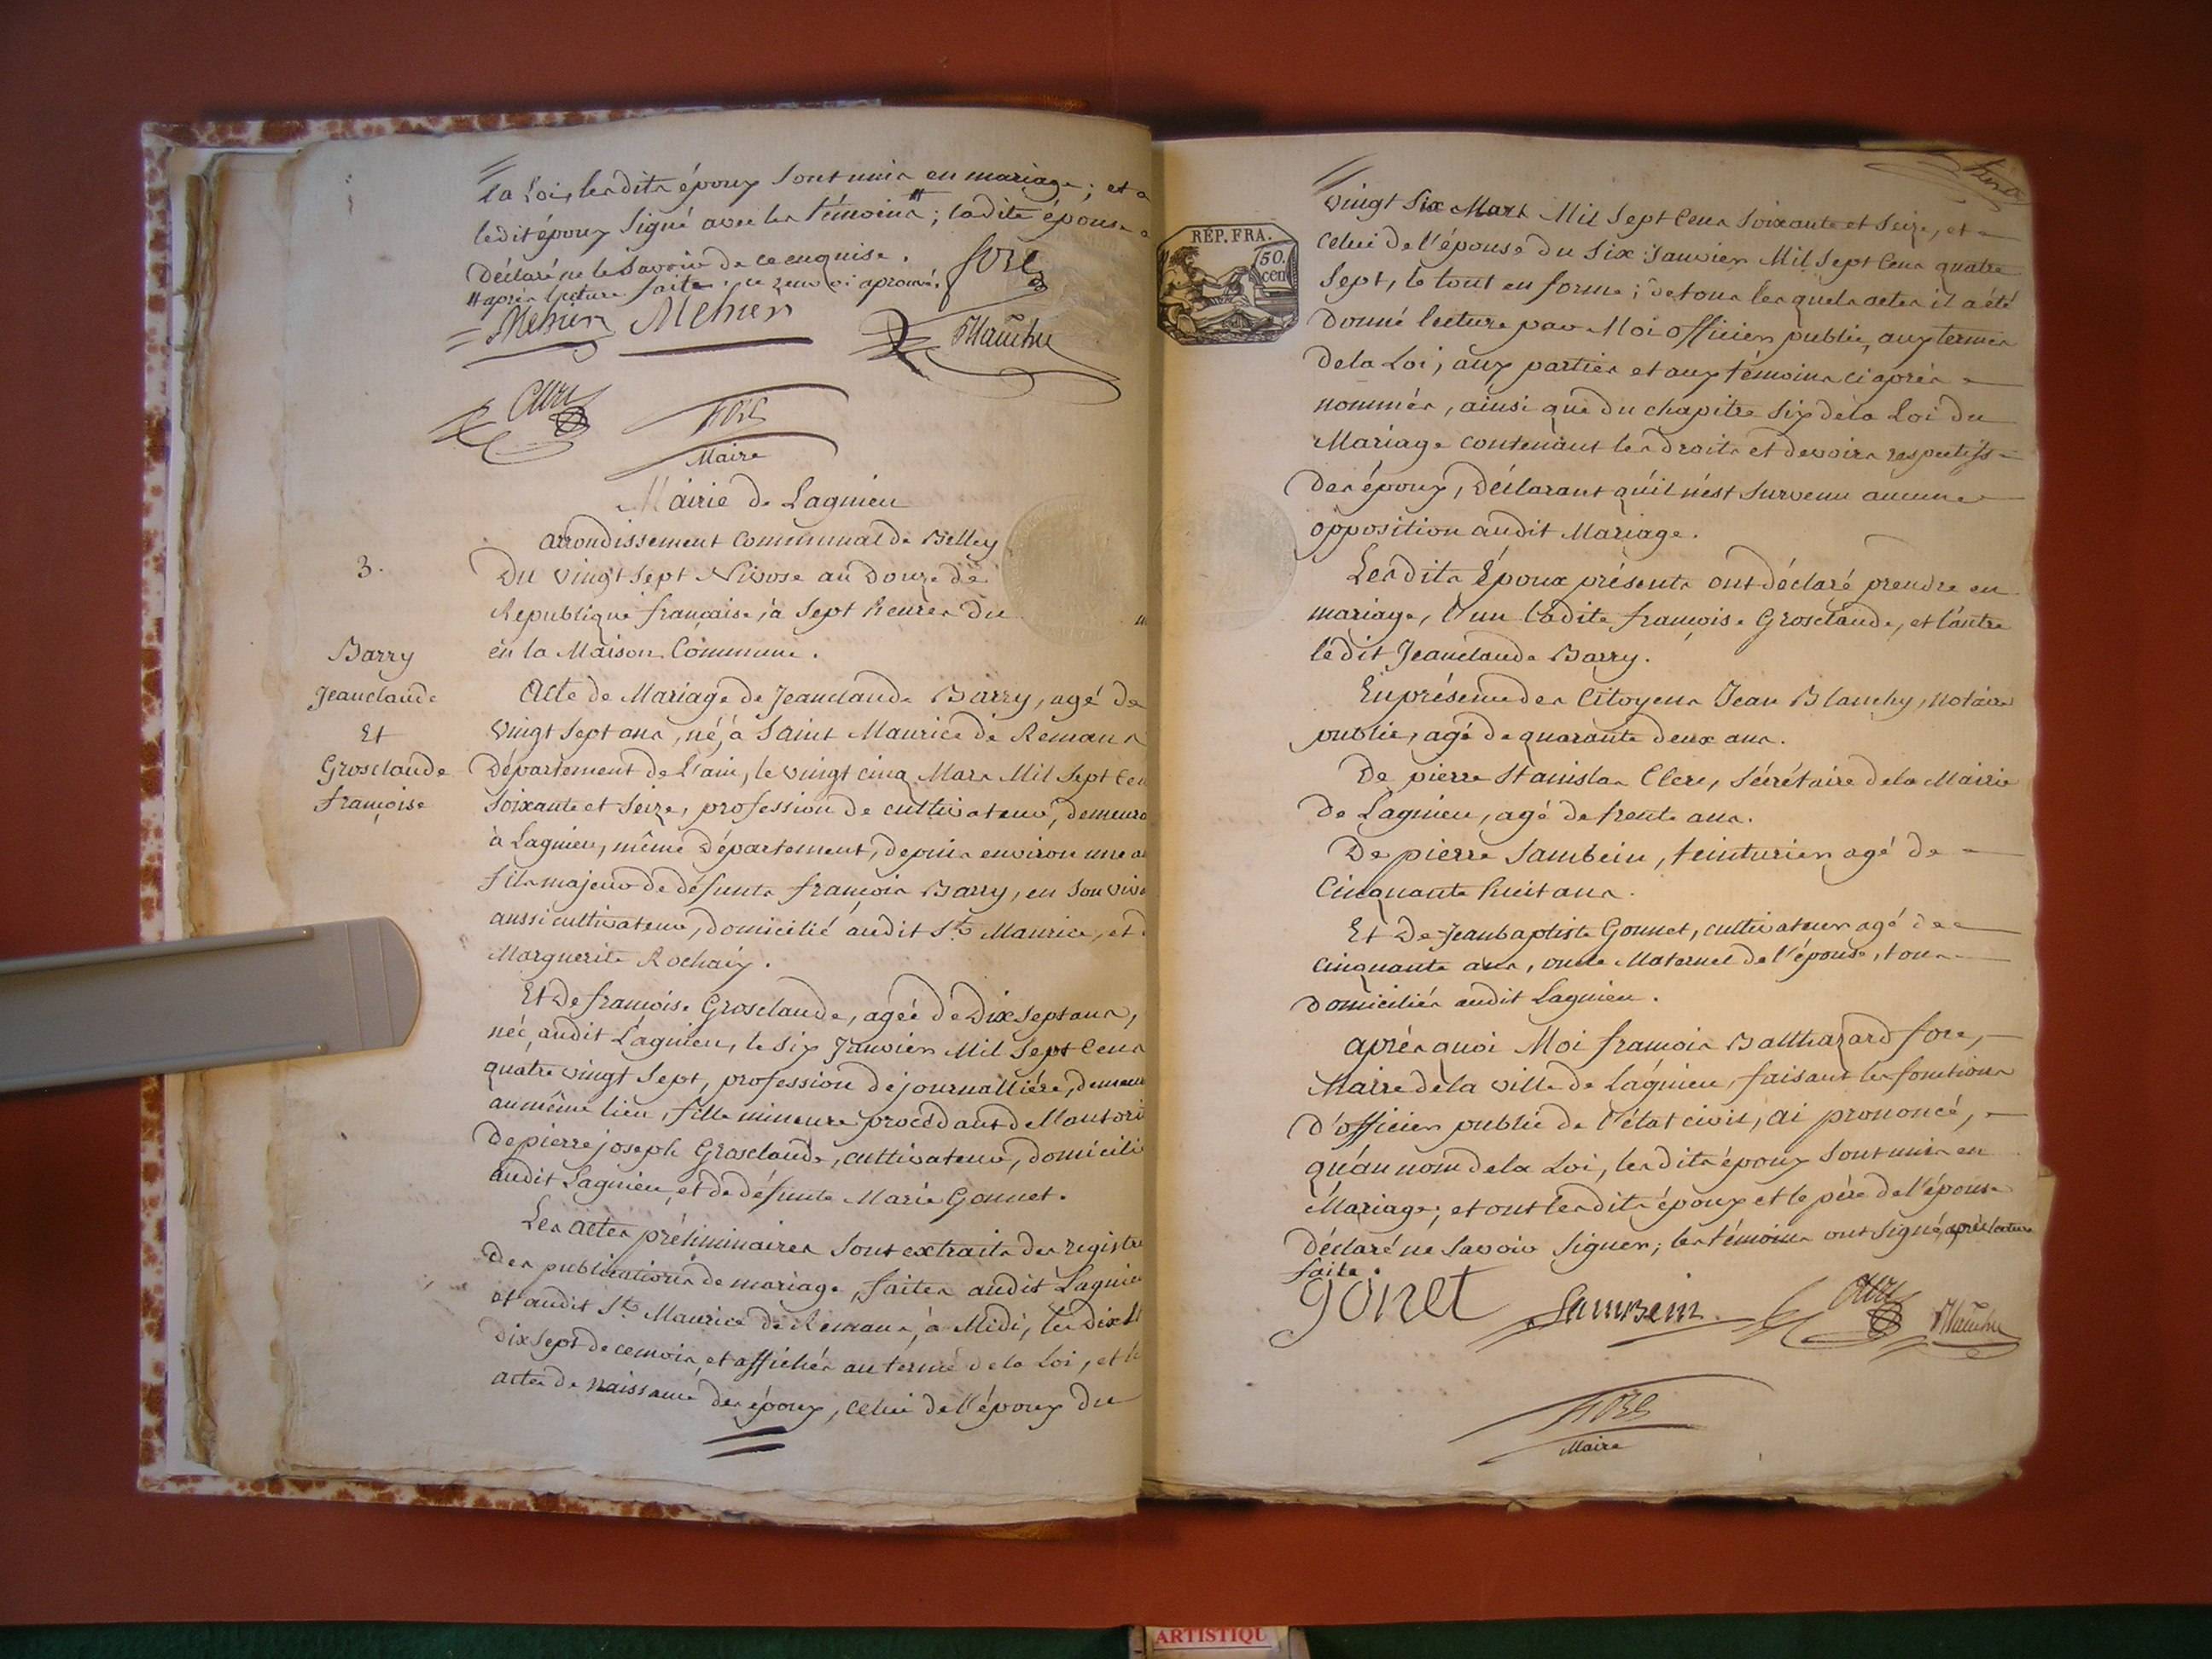 la Loi, lesdits époux sont unis en mariage; et a
ledit époux signé avec les témoins #; ladite épouse a
déclaré ne le savoir de ce enquise.
# après lecture faite. ce renvoi aprouvé.
fore
Mehier Mehier
Blanchy
Clerc
fore
Maire
Mairie de Lagnieu
arrondissement Communal de Belley
3.
Du vingt sept Nivose an Douze de
Republique française, à sept heures du
en la Maison Commune.
Barry
Jeanclaude
Et
Grosclaude
françoise
Acte de Mariage de Jeanclaude Barry, agé de
vingt sept ans, né, à Saint Maurice de Remans
Département de l'ain, le vingt cinq Mars Mil Sept Cen
soixante et seize, profession de cultivateur, demeura
à Lagnieu, même Département, depuis environ une a
fils majeur de défunts françois Barry, en son viva
aussi cultivateur, domicilié audit St. Maurice, et
Marguerite Rochaix.
Et De françoise Grosclaude, agée de Dix sept ans,
née, audit Lagnieu, le six Janvier Mil Sept Cens
quatre vingt sept, profession de journallière, demeur
au même lieu, fille mineure procédant de l'autori
De pierre joseph Grosclaude, cultivateur, domicili
audit Lagnieu, et de défunte Marie Gonnet.
Les actes préliminaires sont extraits des registre
Des publications de mariage, faites audit Lagnieu
et audit St. Maurice de Remans, à Midi, les Dix
Dix sept de ce mois, et affichés au terme de la Loi, et
actes de naissance des époux, celui de l'époux du
RÉP. FRA.
50.
cen
vingt Six Mars Mil Sept Cens soixante et seize, et
celui de l'épouse du six Janvier Mil Sept Cens quatre
Sept, le tout en forme; de tous lesquels actes il a été
donné lecture par Moi officier public, aux termes
de la Loi, aux parties et aux témoins ci après
nommés, ainsi que du chapitre six de la Loi du
Mariage contenant les droits et devoirs respectifs
des époux, déclarant qu'il n'est survenu aucune
opposition audit Mariage.
Lesdits Époux présents ont déclaré prendre en
mariage, l'un ladite françoise Grosclaude, et l'autre
ledit Jeanclaude Barry.
En présence des Citoyens Jean Blanchy, Notaire
public, agé de quarante deux ans.
De pierre Stanislas Clerc, Sécrétaire de la Mairie
de Lagnieu, agé de trente ans.
De pierre Sambein, teinturier agé de
Cinquante huit ans.
Et De Jeanbaptiste Gonnet, cultivateur agé de
cinquante ans, oncle Maternel de l'épouse, tous
domiciliés audit Lagnieu.
après quoi Moi françois Balthazard fore,
Maire de la ville de Lagnieu, faisant les fonctions
d'officier public de l'état civil, ai prononcé,
qu'au nom de la Loi, lesdits époux sont unis en
Mariage; et ont lesdits époux et le père de l'épouse
Déclaré ne savoir signer; les témoins ont signé, après lecture
faite.
gonet Sambein Clerc Blanchy
fore
Maire
ARTISTIQU